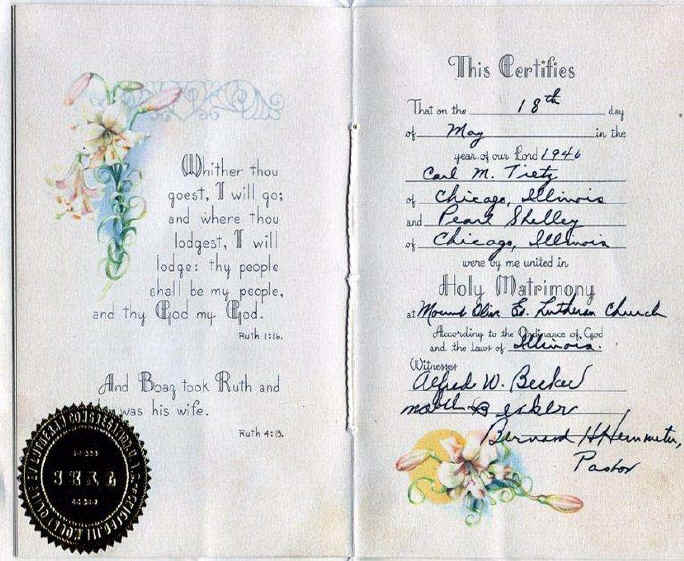 Whither thou
goest, I will go;
and where thou
lodgest, I will
lodge: thy people
shall be my people,
and thy God my God.
Ruth 1:16.
And Boaz took Ruth and
was his wife.
Ruth 4:13.
SEAL
This Certifies
That on the 18th day
of May in the
year of our Lord 1946
Carl M. Tietz
of Chicago, Illinois
and Pearl Shelley
of Chicago, Illinois
were by me united in
Holy Matrimony
at Mount Olive Ev. Lutheran Church
According to the Ordinance of God
and the Laws of Illinois.
Witnesses
Alfred W. Becker
Becker
Bernard H.
Pastor